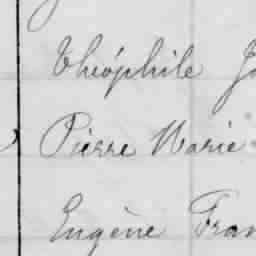 Théophile
Pierre Marie
Eugène Fran